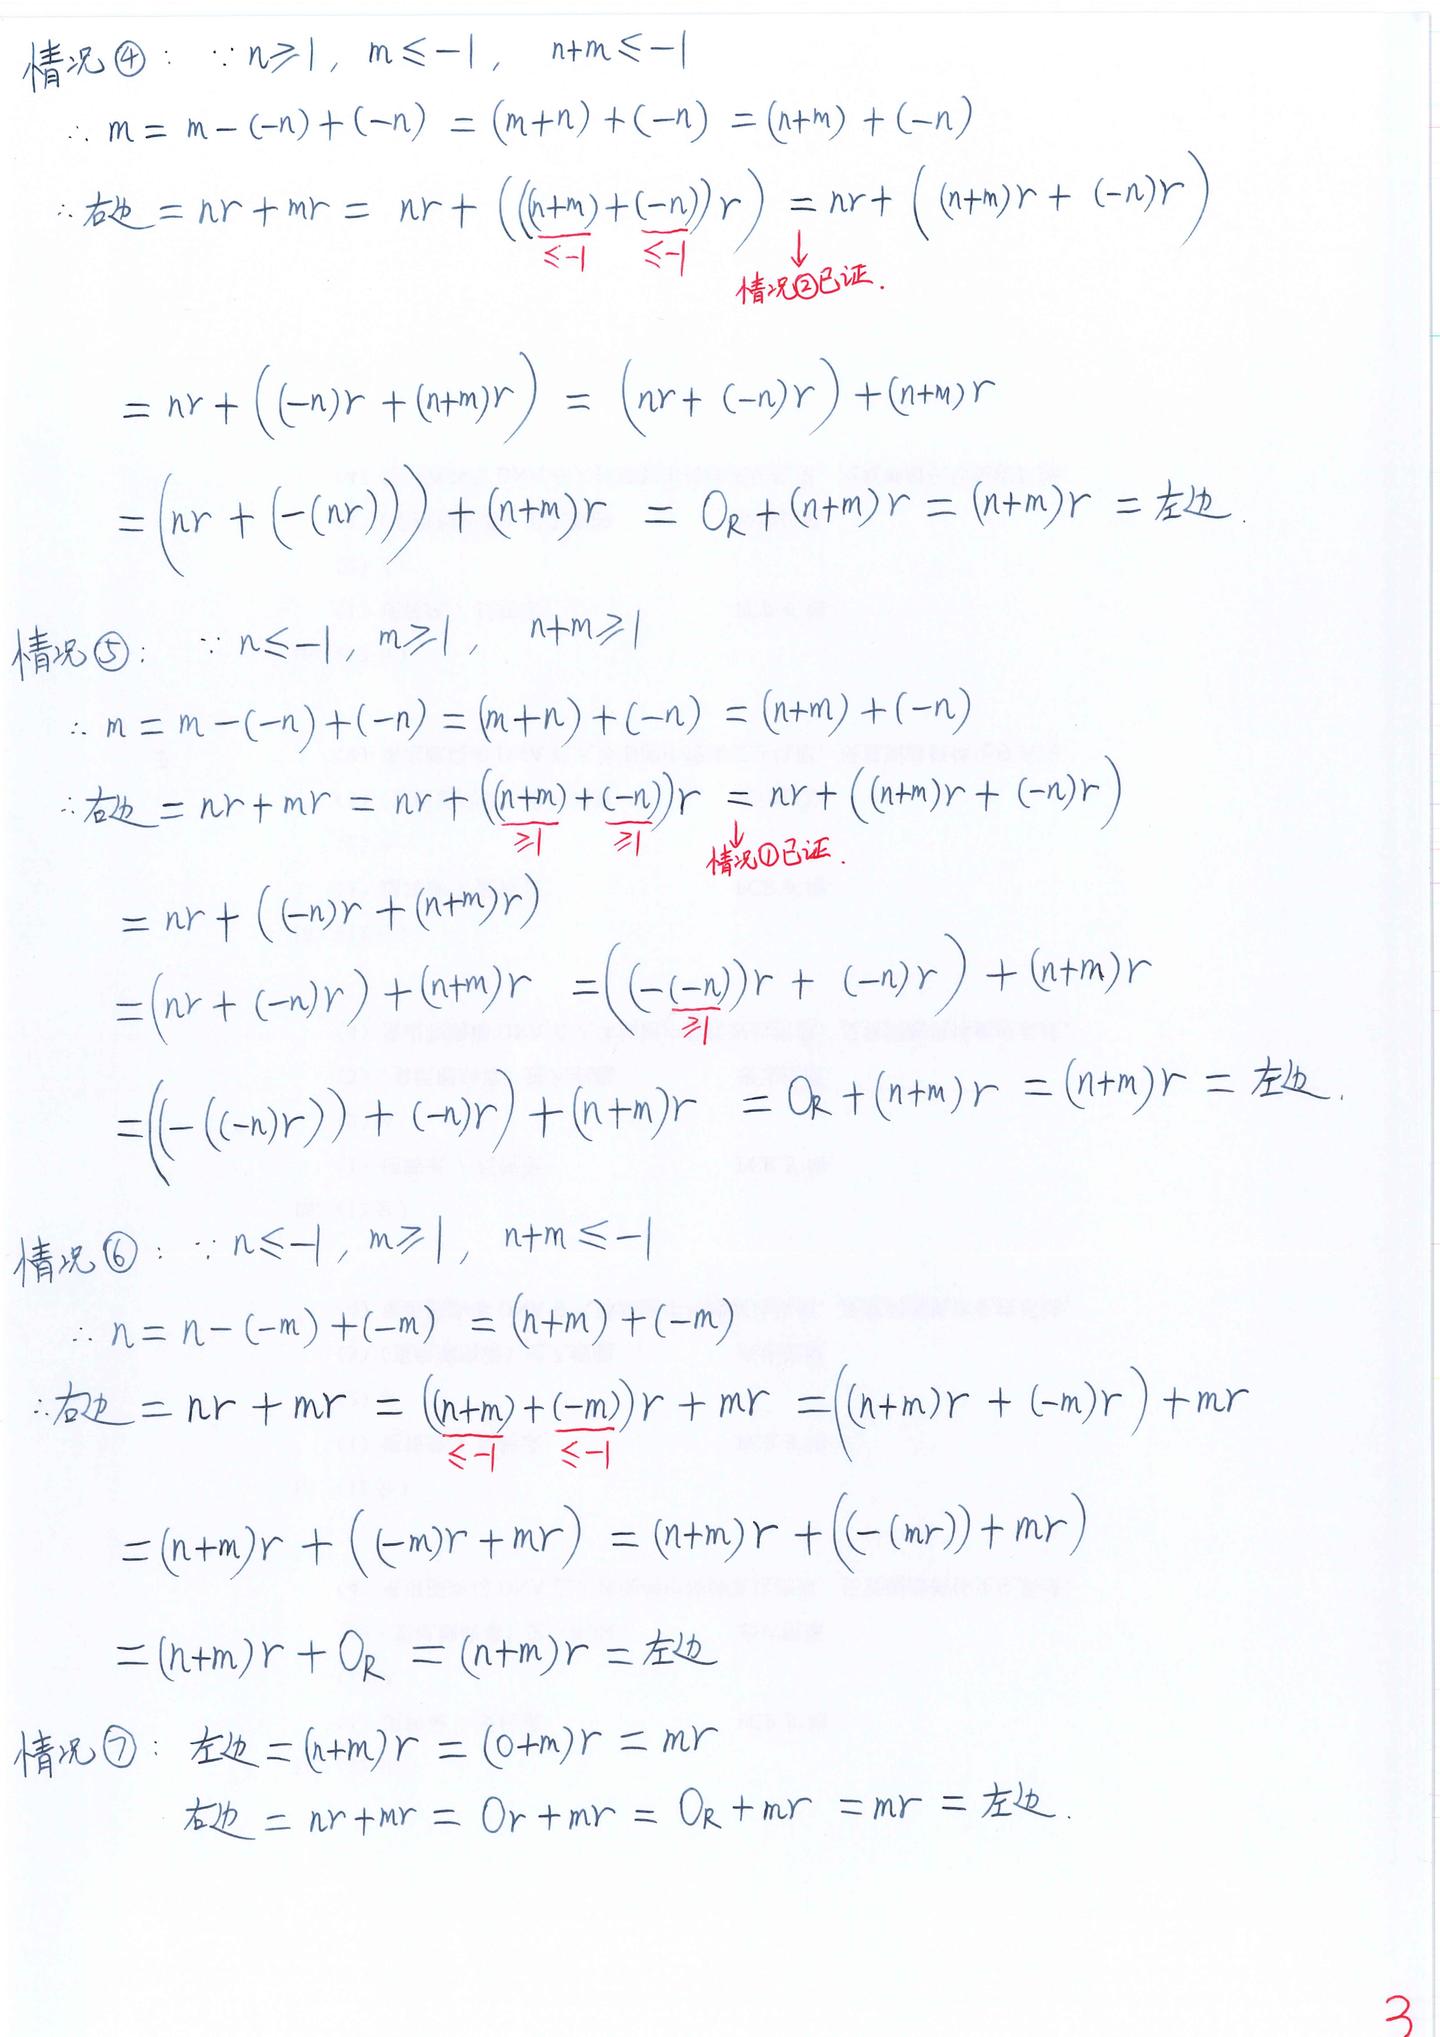 情况④: ∵ n⩾1, m⩽-1, n+m⩽-1
∴ m = m-(-n)+(-n) = (m+n)+(-n) = (n+m)+(-n)
∴ 右边 = nr+mr = nr+(((n+m)+(-n))r) = nr+((n+m)r+(-n)r)
⩽-1 ⩽-1 ↓
情况②已证.
= nr+((-n)r+(n+m)r) = (nr+(-n)r)+(n+m)r
= (nr+(-(nr)))+(n+m)r = 0_R+(n+m)r = (n+m)r = 左边.
情况⑤: ∵ n⩽-1, m⩾1, n+m⩾1
∴ m = m-(-n)+(-n) = (m+n)+(-n) = (n+m)+(-n)
∴ 右边 = nr+mr = nr+((n+m)+(-n))r = nr+((n+m)r+(-n)r)
⩾1 ⩾1 ↓
情况①已证.
= nr+((-n)r+(n+m)r)
= (nr+(-n)r)+(n+m)r = ((-(-n))r+(-n)r)+(n+m)r
⩾1
= ((-((-n)r))+(-n)r)+(n+m)r = 0_R+(n+m)r = (n+m)r = 左边.
情况⑥: ∵ n⩽-1, m⩾1, n+m⩽-1
∴ n = n-(-m)+(-m) = (n+m)+(-m)
∴ 右边 = nr+mr = ((n+m)+(-m))r+mr = ((n+m)r+(-m)r)+mr
⩽-1 ⩽-1
= (n+m)r+((-m)r+mr) = (n+m)r+((-(mr))+mr)
= (n+m)r+0_R = (n+m)r = 左边
情况⑦: 左边 = (n+m)r = (0+m)r = mr
右边 = nr+mr = 0r+mr = 0_R+mr = mr = 左边.
3